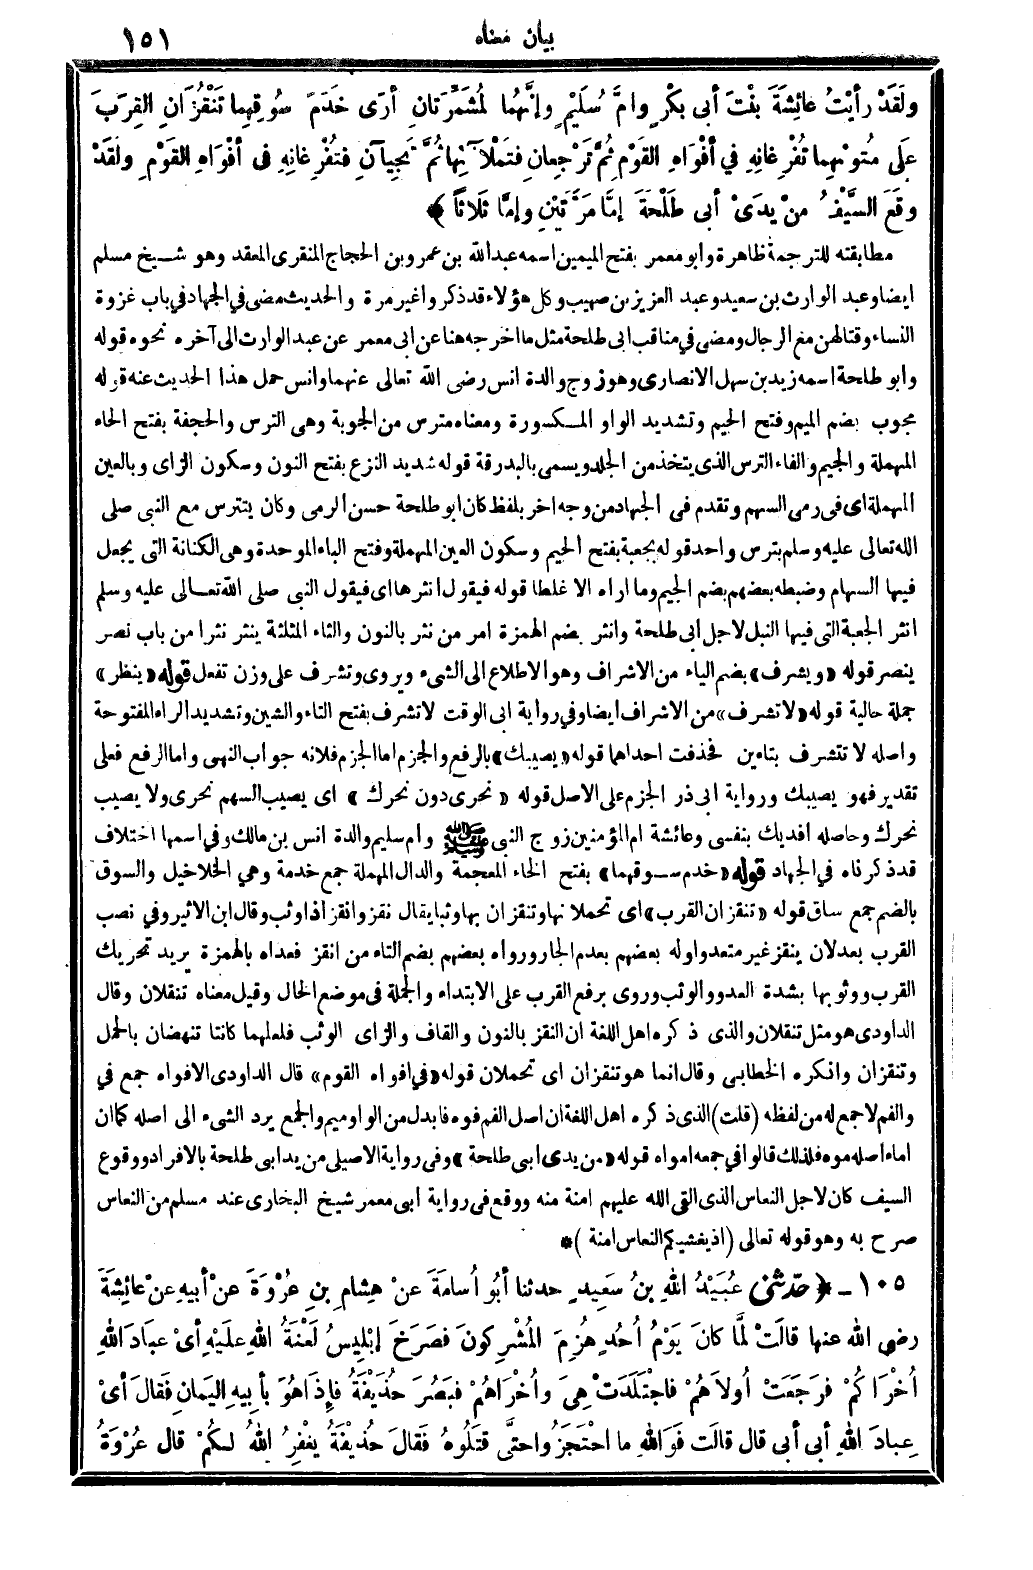 بيان معناه ١٥١
ولَقَدْ رأيْتُ عائِشَةَ بِنْتَ أبى بكْرٍ وامَّ سُلَيْمٍ وإنَّهُما لَمُشَمِّرَتانِ أرَى خَدَمَ سُوقِهِما تَنْقُزَانِ القِرَبَ
عَلَى مُتونِهِما تُفْرِغانِهِ في أفْوَاهِ القَوْمِ ثُمَّ تَرْجِعانِ فتَمْلَآنِها ثُمَّ تَجِيآنِ فتُفْرِغانِهِ فى أفْوَاهِ القَوْمِ ولقَدْ
وقَعَ السَّيْفُ مِنْ يدَىْ أبى طَلْحَةَ إمَّا مَرَّتَيْنِ وإمَّا ثَلَاثاً ﴾
مطابقته للترجمة ظاهرة وابو معمر بفتح الميمين اسمه عبدالله بن عمرو بن الحجاج المنقرى المقعد وهو شيخ مسلم
ايضا وعبد الوارث بن سعيد وعبد العزيز بن صهيب وكل هؤلاء قد ذكروا غير مرة والحديث مضى في الجهاد في باب غزوة
النساء وقتالهن مع الرجال ومضى في مناقب ابى طلحة مثل ما اخرجه هنا عن ابى معمر عن عبد الوارث الى آخره نحوه قوله
وابو طلحة اسمه زيد بن سهل الانصارى وهو زوج والدة انس رضى الله تعالى عنهما وانس حمل هذا الحديث عنه قوله
مجوب بضم الميم وفتح الجيم وتشديد الواو المكسورة ومعناه مترس من الجوبة وهى الترس والحجفة بفتح الحاء
المهملة والجيم والفاء الترس الذى يتخذ من الجلد ويسمى بالبدرقة قوله شديد النزع بفتح النون وسكون الزاى وبالعين
المهملة اى فى رمى السهم وتقدم فى الجهاد من وجه اخر بلفظ كان ابو طلحة حسن الرمى وكان يتترس مع النبى صلى
الله تعالى عليه وسلم بترس واحد قوله بجعبة بفتح الجيم وسكون العين المهملة وفتح الباء الموحدة وهى الكنانة التى يجعل
فيها السهام وضبطه بعضهم بضم الجيم وما اراه الا غلطا قوله فيقول انثرها اى فيقول النبى صلى الله تعالى عليه وسلم
انثر الجعبة التى فيها النبل لاجل ابى طلحة وانثر بضم الهمزة امر من نثر بالنون والثاء المثلثة ينثر نثرا من باب نصر
ينصر قوله «ويشرف» بضم الياء من الاشراف وهو الاطلاع الى الشىء ويروى وتشرف على وزن تفعل قوله «ينظر»
جملة حالية قوله «لا تشرف» من الاشراف ايضا وفي رواية ابى الوقت لا تشرف بفتح التاء والشين وتشديد الراء المفتوحة
واصله لا تتشرف بتاءين فحذفت احداهما قوله «يصيبك» بالرفع والجزم اما الجزم فلانه جواب النهى واما الرفع فعلى
تقدير فهو يصيبك ورواية ابى ذر الجزم على الاصل قوله «نحرى دون نحرك» اى يصيب السهم نحرى ولا يصيب
نحرك وحاصله افديك بنفسى وعائشة ام المؤمنين زوج النبى ﷺ وام سليم والدة انس بن مالك وفي اسمها اختلاف
قد ذكرناه في الجهاد قوله «خدم سوقهما» بفتح الخاء المعجمة والدال المهملة جمع خدمة وهي الخلاخيل والسوق
بالضم جمع ساق قوله «تنقزان القرب» اى تحملانها وتنقزان بها وثبا يقال نقز وانقز اذا وثب وقال ابن الاثير وفي نصب
القرب بعد لان ينقز غير متعد واوله بعضهم بعدم الجار ورواه بعضهم بضم التاء من انقز فعداه بالهمزة يريد تحريك
القرب ووثوبها بشدة العدو والوثب وروى برفع القرب على الابتداء والجملة فى موضع الحال وقيل معناه تنقلان وقال
الداودى هو مثل تنقلان والذى ذكره اهل اللغة ان النقز بالنون والقاف والزاى الوثب فلعلهما كانتا تنهضان بالحمل
وتنقزان وانكره الخطابى وقال انما هو تنقزان اى تحملان قوله «في افواه القوم» قال الداودى الافواه جمع في
والفم لا جمع له من لفظه (قلت) الذى ذكره اهل اللغة ان اصل الفم فوه فابدل من الواو ميم والجمع يرد الشىء الى اصله كما ان
اماء اصله موه فلذلك قالوا في جمعه امواه قوله «من يدى ابى طلحة» وفى رواية الاصيلى من يد ابى طلحة بالافراد ووقوع
السيف كان لاجل النعاس الذى القى الله عليهم امنة منه ووقع فى رواية ابى معمر شيخ البخارى عند مسلم من النعاس
صرح به وهو قوله تعالى (اذ يغشيكم النعاس امنة)*
١٠٥ ـ ﴿ حدّثنى عُبَيْدُ اللهِ بنُ سَعِيدٍ حدثنا أبُو أُسامَةَ عنْ هِشامِ بنِ عُرْوَةَ عنْ أبِيهِ عنْ عائِشَةَ
رضى الله عنها قالَتْ لَمَّا كانَ يَوْمُ أُحُدٍ هُزِمَ المُشْرِكونَ فصَرَخَ إبْلِيسُ لَعْنَةُ اللهِ علَيْهِ أىْ عبادَ اللهِ
أُخْرَاكُمْ فرَجَعَتْ أُولاَهُمْ فاجْتَلَدَتْ هِىَ وأُخْرَاهُمْ فبَصُرَ حُذَيْفَةُ فإذَا هُوَ بأبِيهِ اليَمانِ فَقالَ أىْ
عِبادَ اللهِ أبى أبى قال قالَت فَوَاللهِ ما احْتَجَزُوا حتَّى قتَلُوهُ فَقالَ حُذَيْفَةُ يغْفِرُ اللهُ لَكُمْ قال عُرْوَةُ